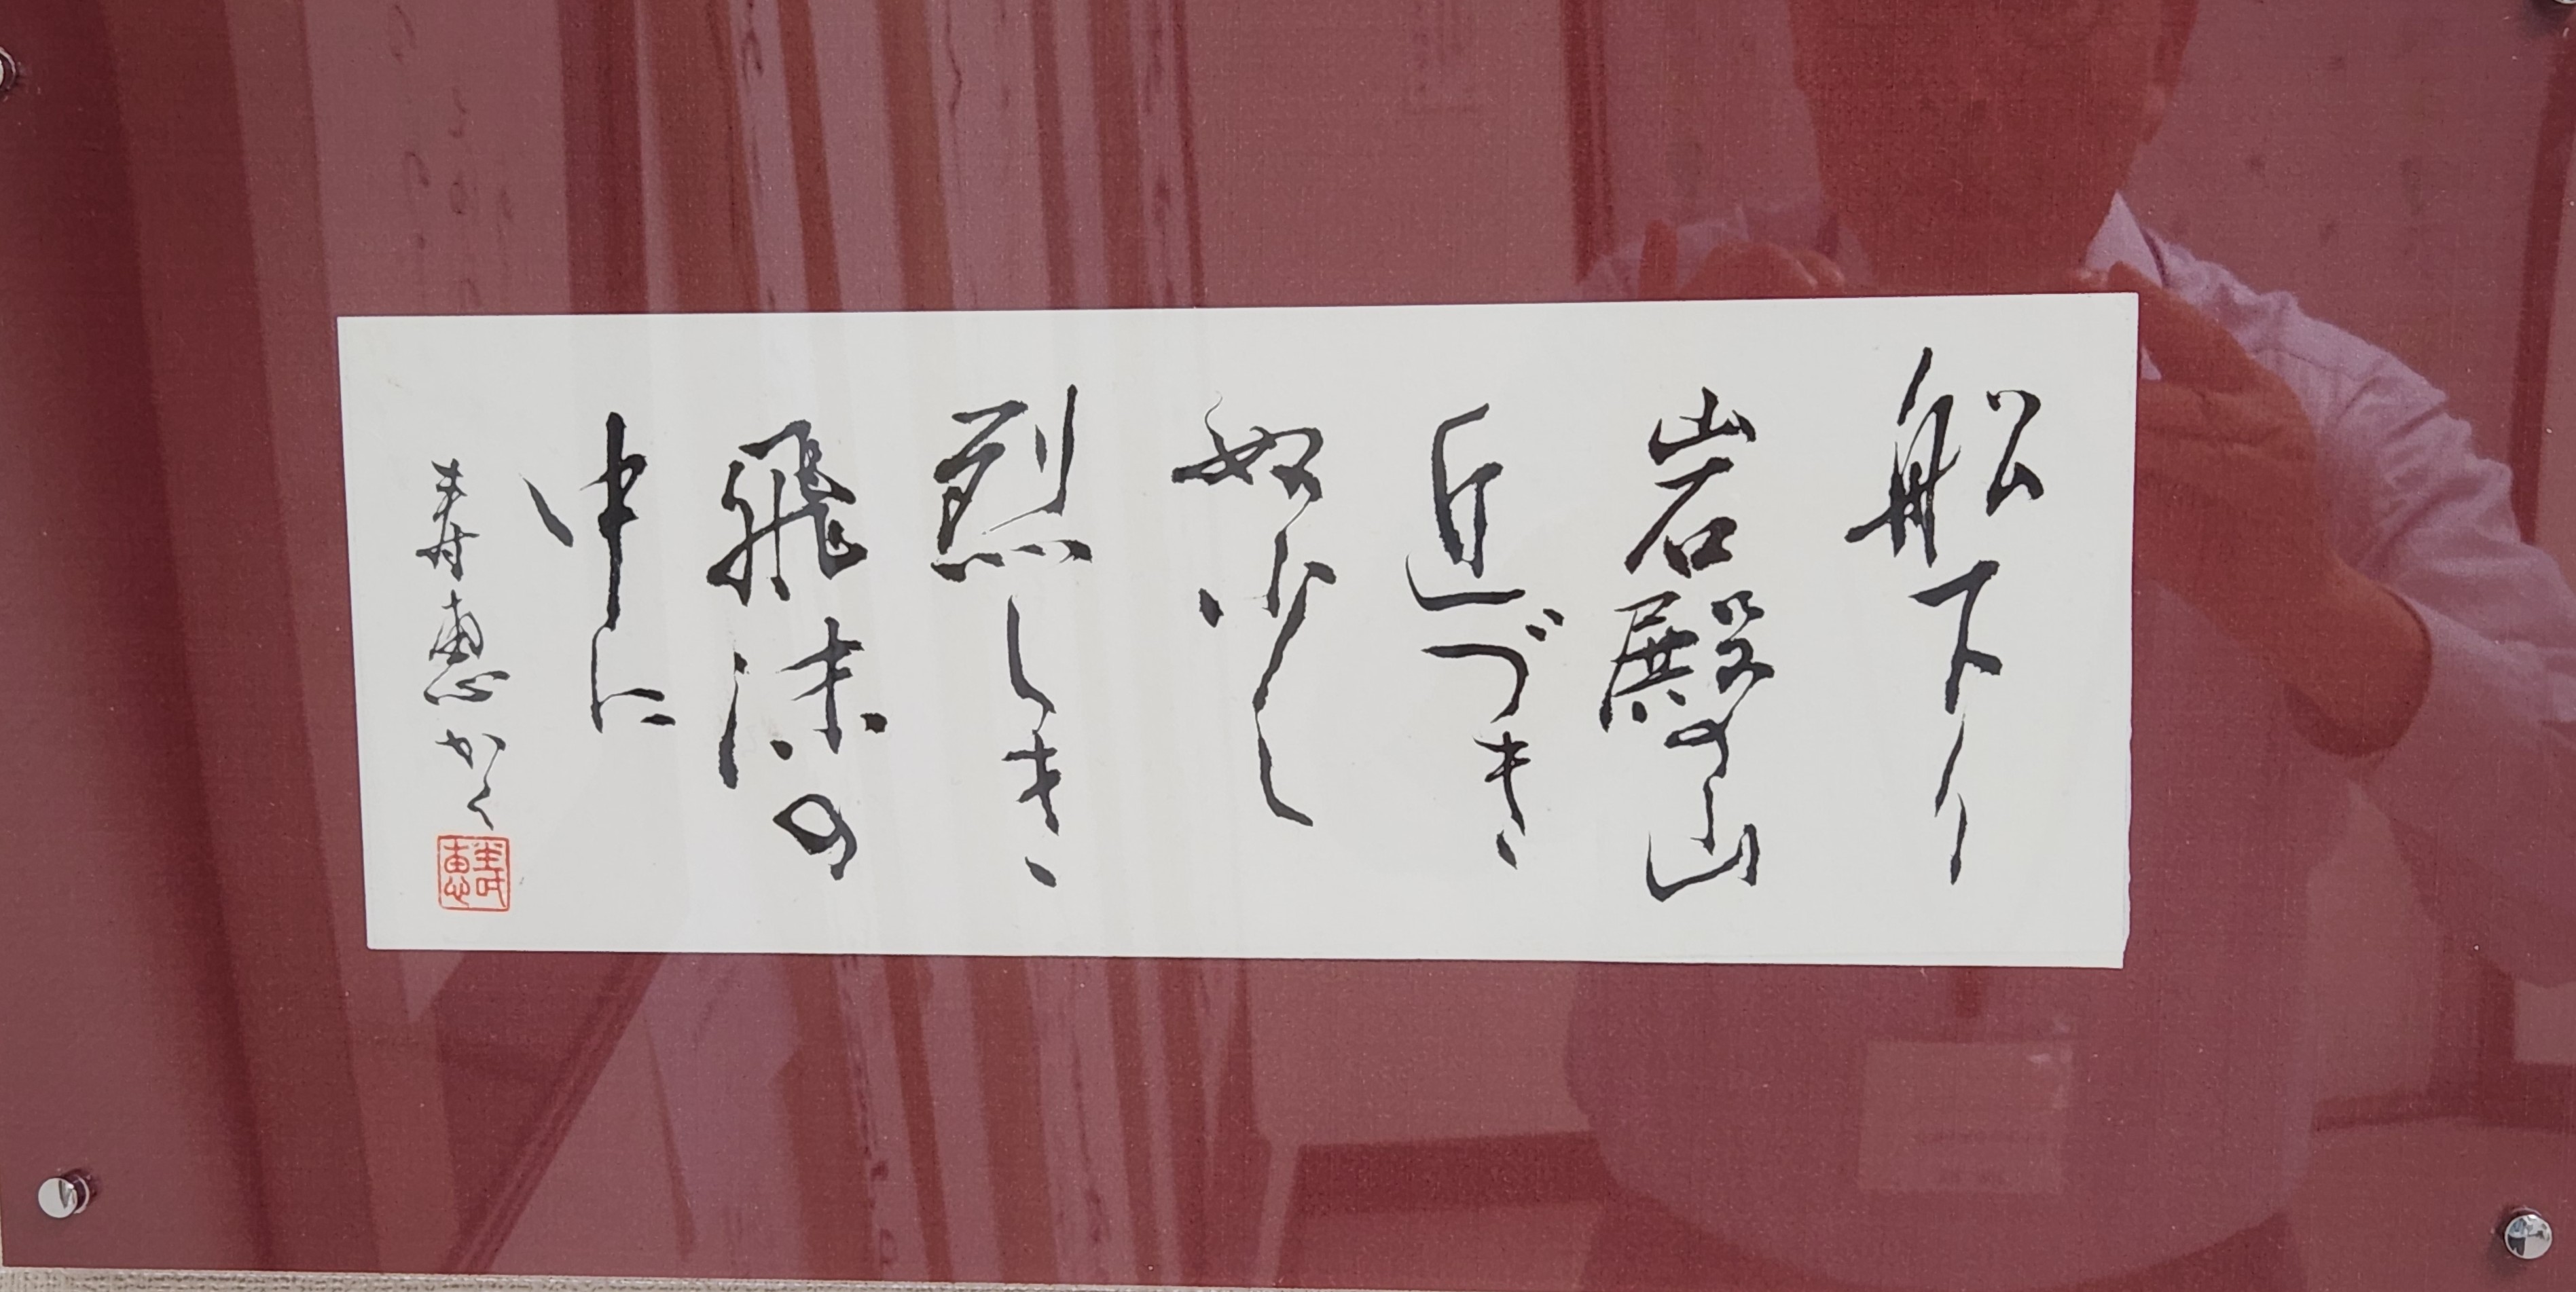 船下り
岩殿の山
近づき
ぬ少し
烈しき
飛沫の
中に
寿恵かく
壽恵